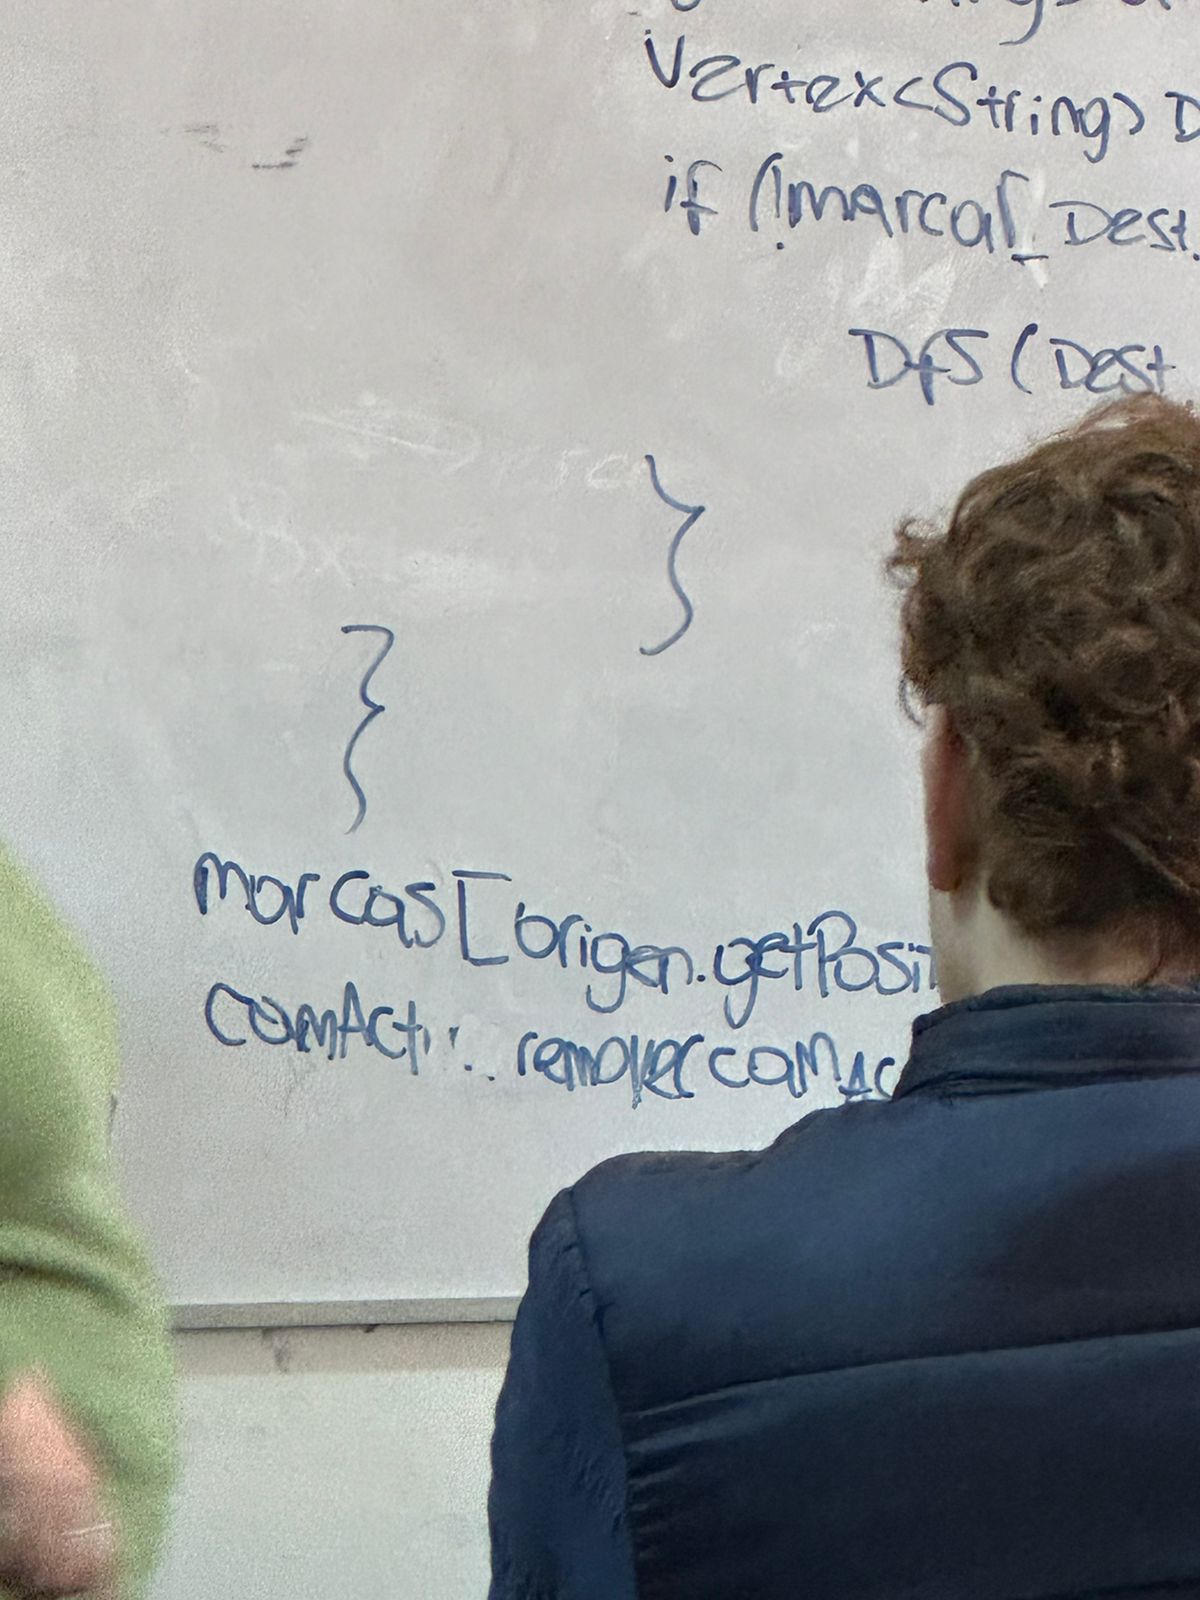 Vertex<String> D
if (!marcas[Dest.
DfS (Dest
}
}
marcas[origen.getPosit
camAct... remover camAc